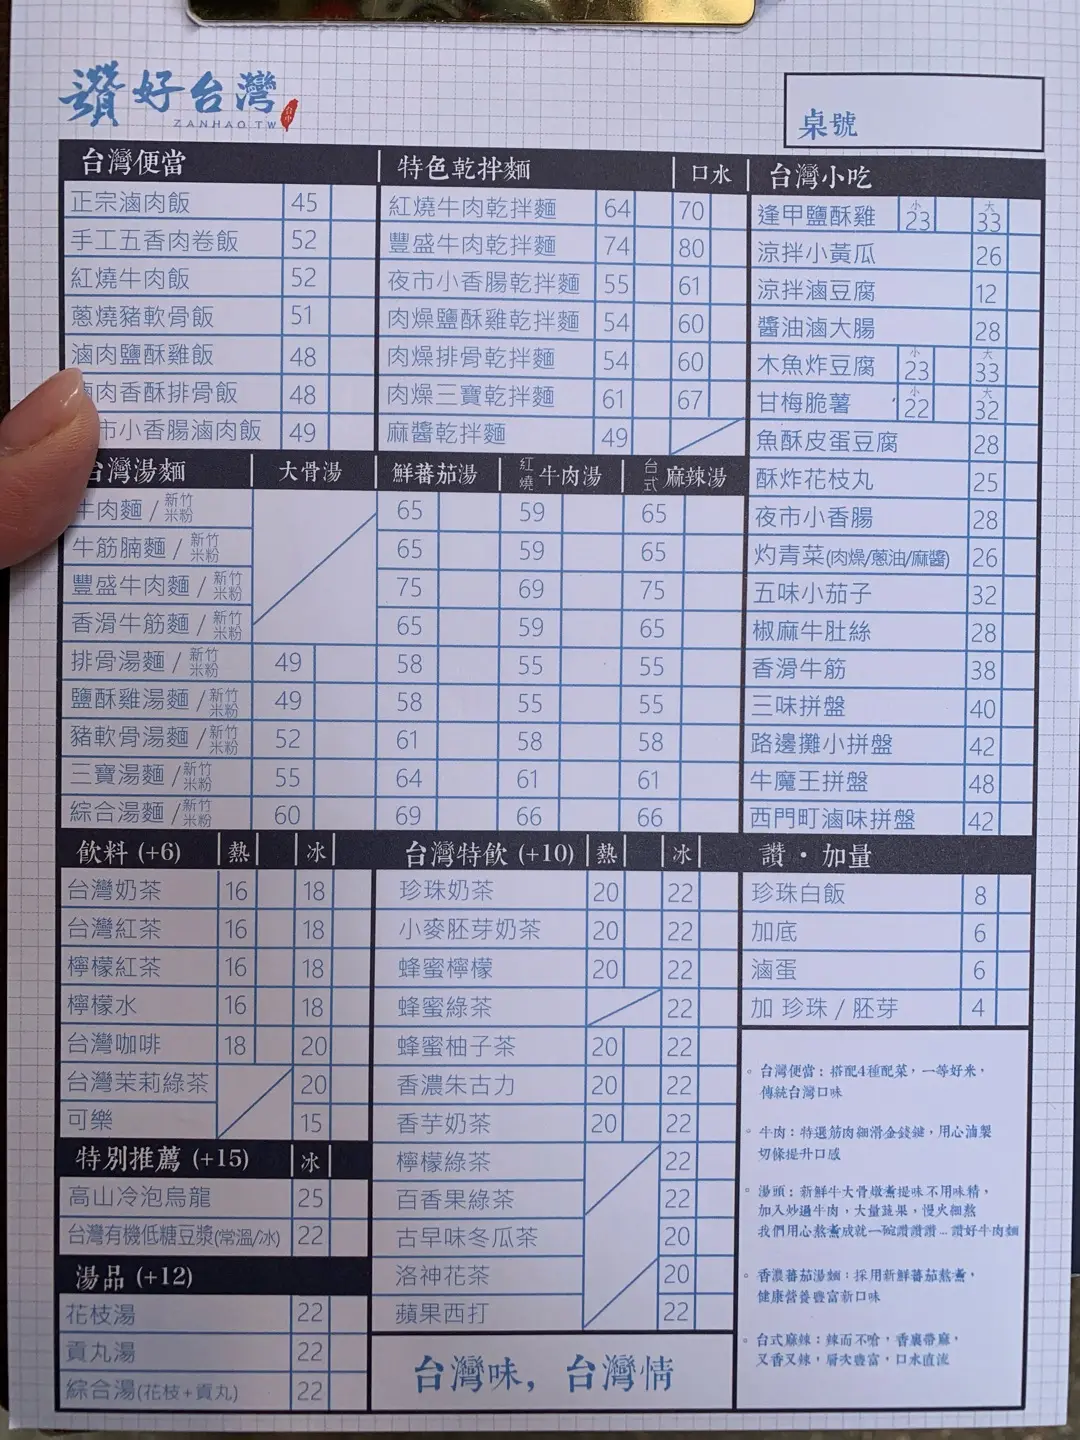 讚好台灣
ZANHAO.TW
桌號
台灣便當
正宗滷肉飯 45
手工五香肉卷飯 52
紅燒牛肉飯 52
蔥燒豬軟骨飯 51
滷肉鹽酥雞飯 48
肉香酥排骨飯 48
市小香腸滷肉飯 49
特色乾拌麵 口水
紅燒牛肉乾拌麵 64 70
豐盛牛肉乾拌麵 74 80
夜市小香腸乾拌麵 55 61
肉燥鹽酥雞乾拌麵 54 60
肉燥排骨乾拌麵 54 60
肉燥三寶乾拌麵 61 67
麻醬乾拌麵 49
台灣小吃
逢甲鹽酥雞 小 23 大 33
涼拌小黃瓜 26
涼拌滷豆腐 12
醬油滷大腸 28
木魚炸豆腐 小 23 大 33
甘梅脆薯 小 22 大 32
魚酥皮蛋豆腐 28
酥炸花枝丸 25
夜市小香腸 28
灼青菜(肉燥/蔥油/麻醬) 26
五味小茄子 32
椒麻牛肚絲 28
香滑牛筋 38
三味拼盤 40
路邊攤小拼盤 42
牛魔王拼盤 48
西門町滷味拼盤 42
台灣湯麵 大骨湯 鮮蕃茄湯 紅燒牛肉湯 台式麻辣湯
牛肉麵/新竹米粉 65 59 65
牛筋腩麵/新竹米粉 65 59 65
豐盛牛肉麵/新竹米粉 75 69 75
香滑牛筋麵/新竹米粉 65 59 65
排骨湯麵/新竹米粉 49 58 55 55
鹽酥雞湯麵/新竹米粉 49 58 55 55
豬軟骨湯麵/新竹米粉 52 61 58 58
三寶湯麵/新竹米粉 55 64 61 61
綜合湯麵/新竹米粉 60 69 66 66
飲料 (+6) 熱 冰
台灣奶茶 16 18
台灣紅茶 16 18
檸檬紅茶 16 18
檸檬水 16 18
台灣咖啡 18 20
台灣茉莉綠茶 20
可樂 15
特別推薦 (+15) 冰
高山冷泡烏龍 25
台灣有機低糖豆漿(常溫/冰) 22
湯品 (+12)
花枝湯 22
貢丸湯 22
綜合湯(花枝+貢丸) 22
台灣特飲 (+10) 熱 冰
珍珠奶茶 20 22
小麥胚芽奶茶 20 22
蜂蜜檸檬 20 22
蜂蜜綠茶 22
蜂蜜柚子茶 20 22
香濃朱古力 20 22
香芋奶茶 20 22
檸檬綠茶 22
百香果綠茶 22
古早味冬瓜茶 20
洛神花茶 20
蘋果西打 22
台灣味，台灣情
讚・加量
珍珠白飯 8
加底 6
滷蛋 6
加 珍珠 / 胚芽 4
。台灣便當：搭配4種配菜，一等好米，
傳統台灣口味
。牛肉：特選筋肉細滑金錢腱，用心滷製
切條提升口感
。湯頭：新鮮牛大骨燉煮提味不用味精，
加入炒過牛肉，大量蔬果，慢火細熬
我們用心熬煮成就一碗讚讚讚...讚好牛肉麵
。香濃蕃茄湯麵：採用新鮮蕃茄熬煮，
健康營養豐富新口味
。台式麻辣：辣而不嗆，香裏帶麻，
又香又辣，層次豐富，口水直流